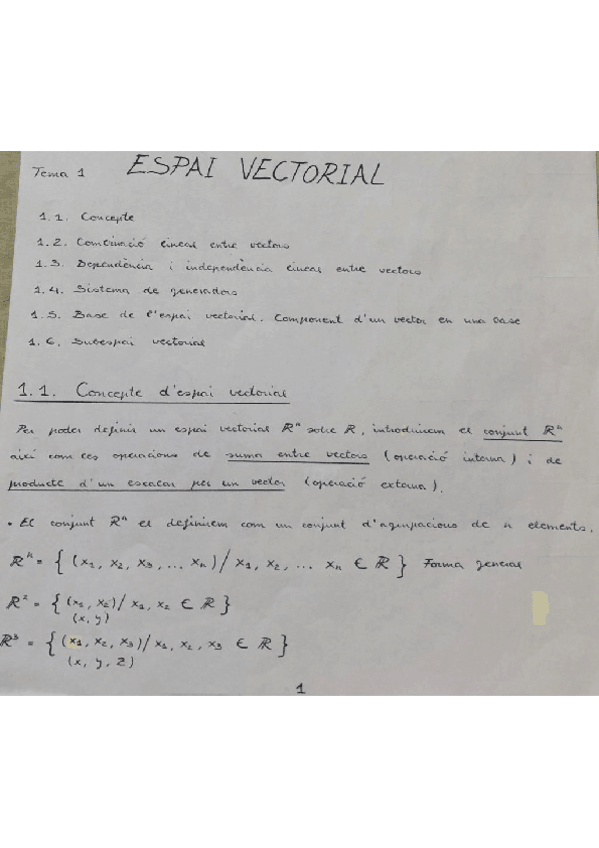 Tema 1 ESPAI VECTORIAL
1.1. Concepte
1.2. Combinació lineal entre vectors
1.3. Dependència i independència lineal entre vectors
1.4. Sistema de generadors
1.5. Base de l'espai vectorial. Component d'un vector en una base
1.6. Subespai vectorial
1.1. Concepte d'espai vectorial
Per poder definir un espai vectorial ℝⁿ sobre ℝ, introduirem el conjunt ℝⁿ
així com les operacions de suma entre vectors (operació interna) i de
producte d'un escalar per un vector (operació externa).
• El conjunt ℝⁿ el definirem com un conjunt d'agrupacions de n elements.
ℝⁿ = { (x₁, x₂, x₃, ... xₙ) / x₁, x₂, ... xₙ ∈ ℝ } Forma general
ℝ² = { (x₁, x₂) / x₁, x₂ ∈ ℝ }
(x, y)
ℝ³ = { (x₁, x₂, x₃) / x₁, x₂, x₃ ∈ ℝ }
(x, y, z)
1